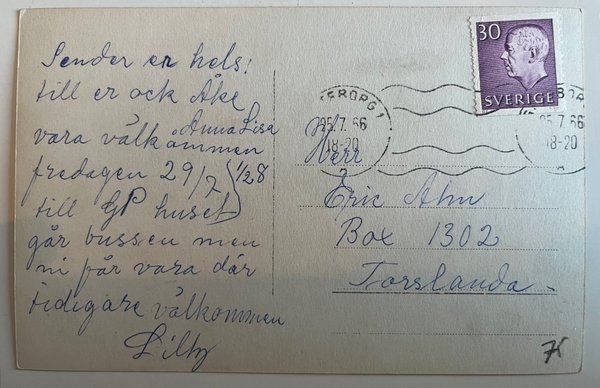 Sender er hels:
till er ock Åke
Anna Lisa
vara välkommen
fredagen 29/7 1/2 8
till GP huset
går bussen men
ni får vara där
tidigare välkommen
Lilly
30
SVERIGE
EBORG 1
25.7.66
18-20
25.7.66
18-20
Herr
Eric Ahn
Box 1302
Torslanda